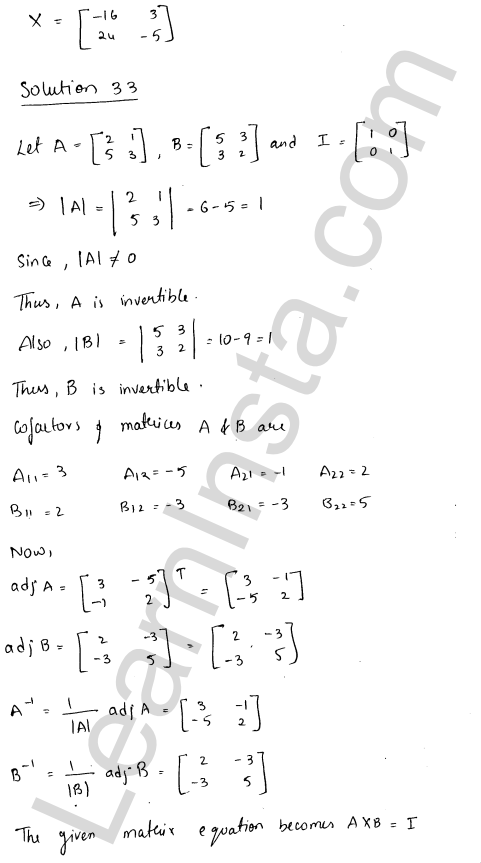 X = [-16 3
24 -5]
Solution 33
Let A = [2 1
5 3], B = [5 3
3 2] and I = [1 0
0 1]
⇒ |A| = |2 1
5 3| = 6-5 = 1
Since, |A| ≠ 0
Thus, A is invertible.
Also, |B| = |5 3
3 2| = 10-9 = 1
Thus, B is invertible.
Cofactors of matrices A & B are
A11 = 3 A12 = -5 A21 = -1 A22 = 2
B11 = 2 B12 = -3 B21 = -3 B22 = 5
Now,
adj A = [3 -5
-1 2]T = [3 -1
-5 2]
adj B = [2 -3
-3 5] = [2 -3
-3 5]
A-1 = 1/|A| adj A = [3 -1
-5 2]
B-1 = 1/|B| adj B = [2 -3
-3 5]
The given matrix equation becomes AXB = I
LearnInsta.com